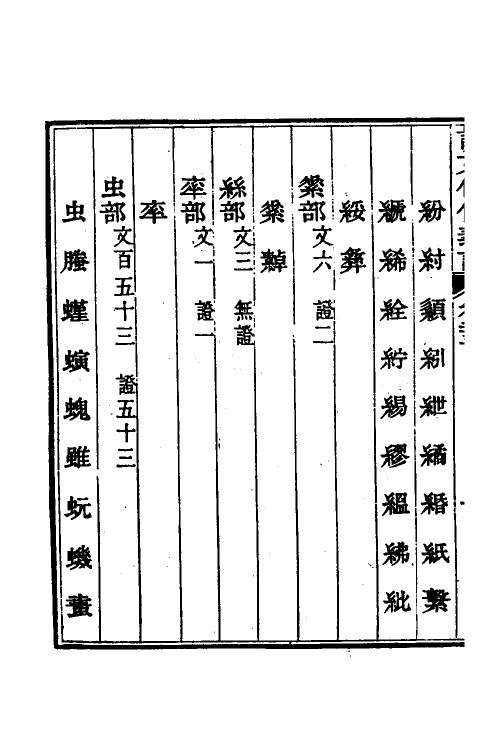 紛 紂 纇 紖 紲 繘 緡 紙 繫
縗 絺 絟 紵 緆 繆 縕 紼 紕
綏 彝
素部文六 證二
素 𦃃
絲部文三 無證
率部文一 證一
率
虫部文百五十三 證五十三
虫 螣 螼 螾 螝 雖 蚖 蟣 蠹